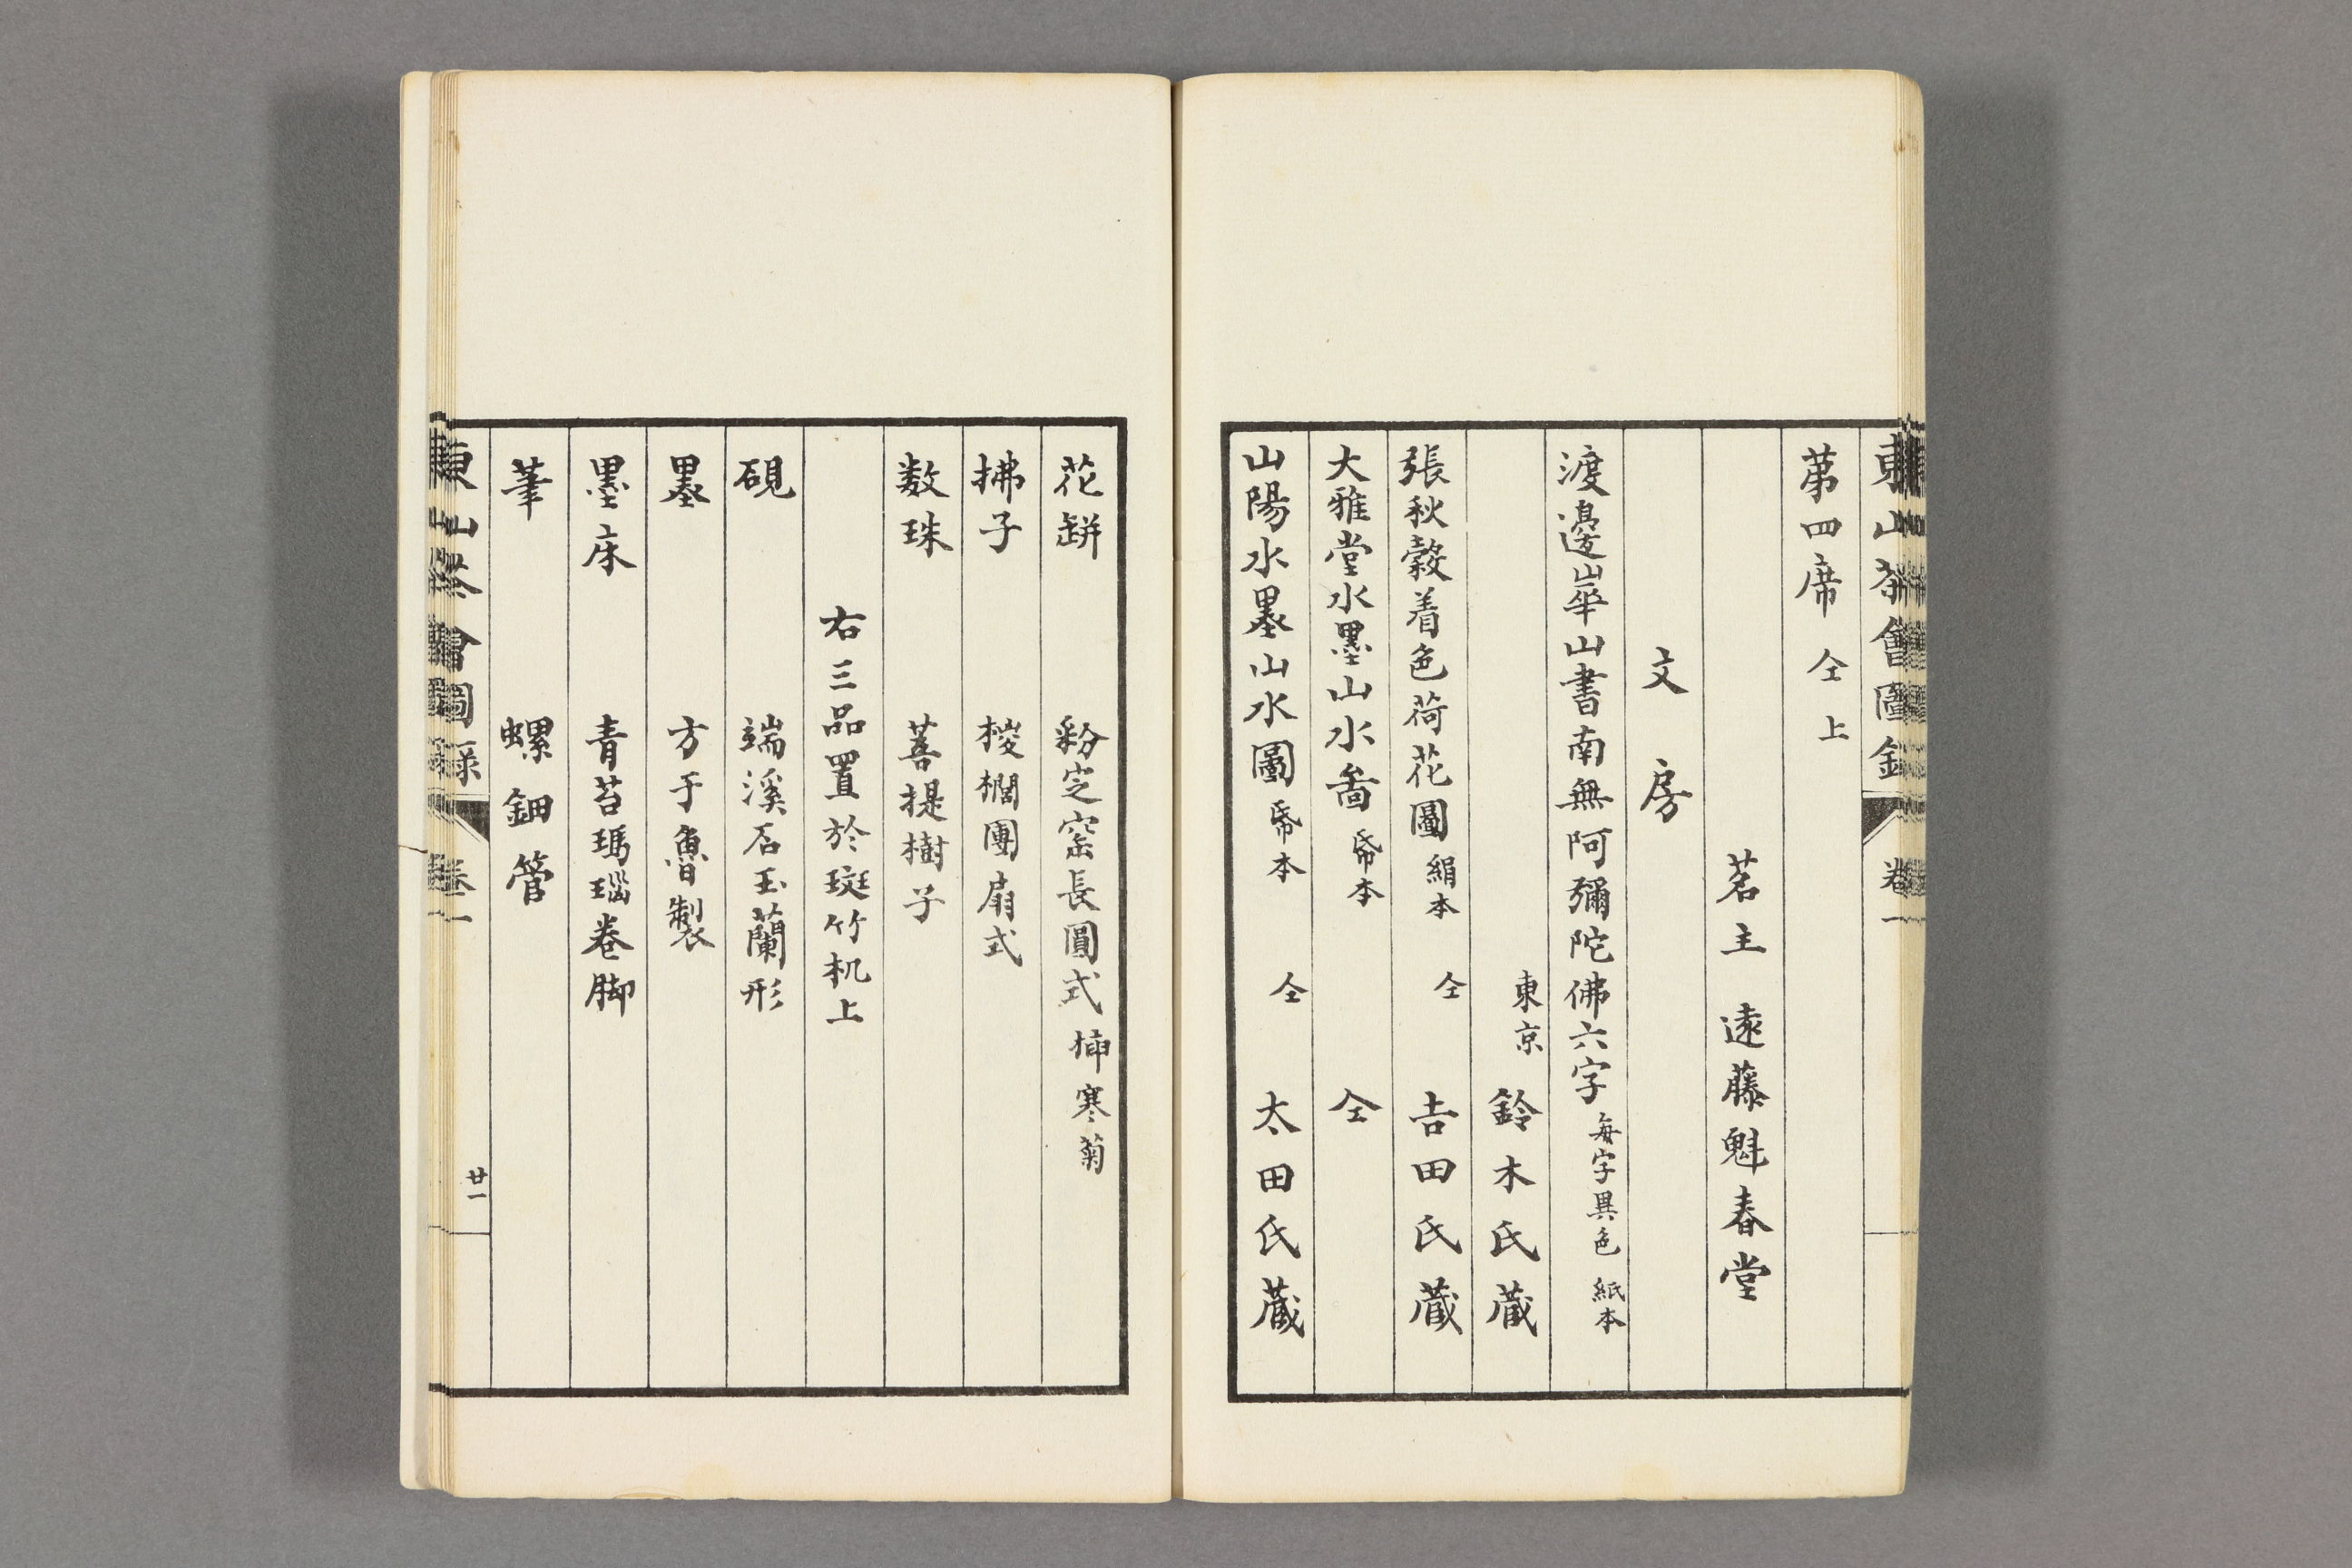 東山茶會圖錄 卷一
第四席 仝上
茗主 遠藤魁春堂
文房
渡邊崋山書南無阿彌陀佛六字 每字異色 紙本
東京 鈴木氏藏
張秋穀着色荷花圖 絹本 仝 吉田氏藏
大雅堂水墨山水啚 帋本 仝
山陽水墨山水圖 帋本 仝 太田氏藏
花缾 粉定窑長圓式 挿寒菊
拂子 椶櫚團扇式
数珠 菩提樹子
右三品置於斑竹机上
硯 端溪石玉蘭形
墨 方于魯製
墨床 青苔瑪瑙卷脚
筆 螺鈿管
東山茶會圖録 卷一 廿一